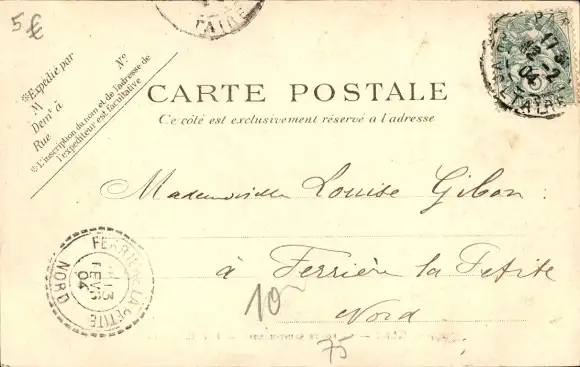 5€
TAIRE
PAR
17
12-2
04
VOLTAIRE
*Expédié par
M
Nº
Demt à
Rue
*L'inscription du nom et de l'adresse de
l'expéditeur est facultative
CARTE POSTALE
Ce côté est exclusivement réservé a l'adresse
Mademoiselle Louise Gibon
à Ferrière la Petite
Nord
FERRIERE-LA-PETITE
13
FEVR
04
NORD
10
75